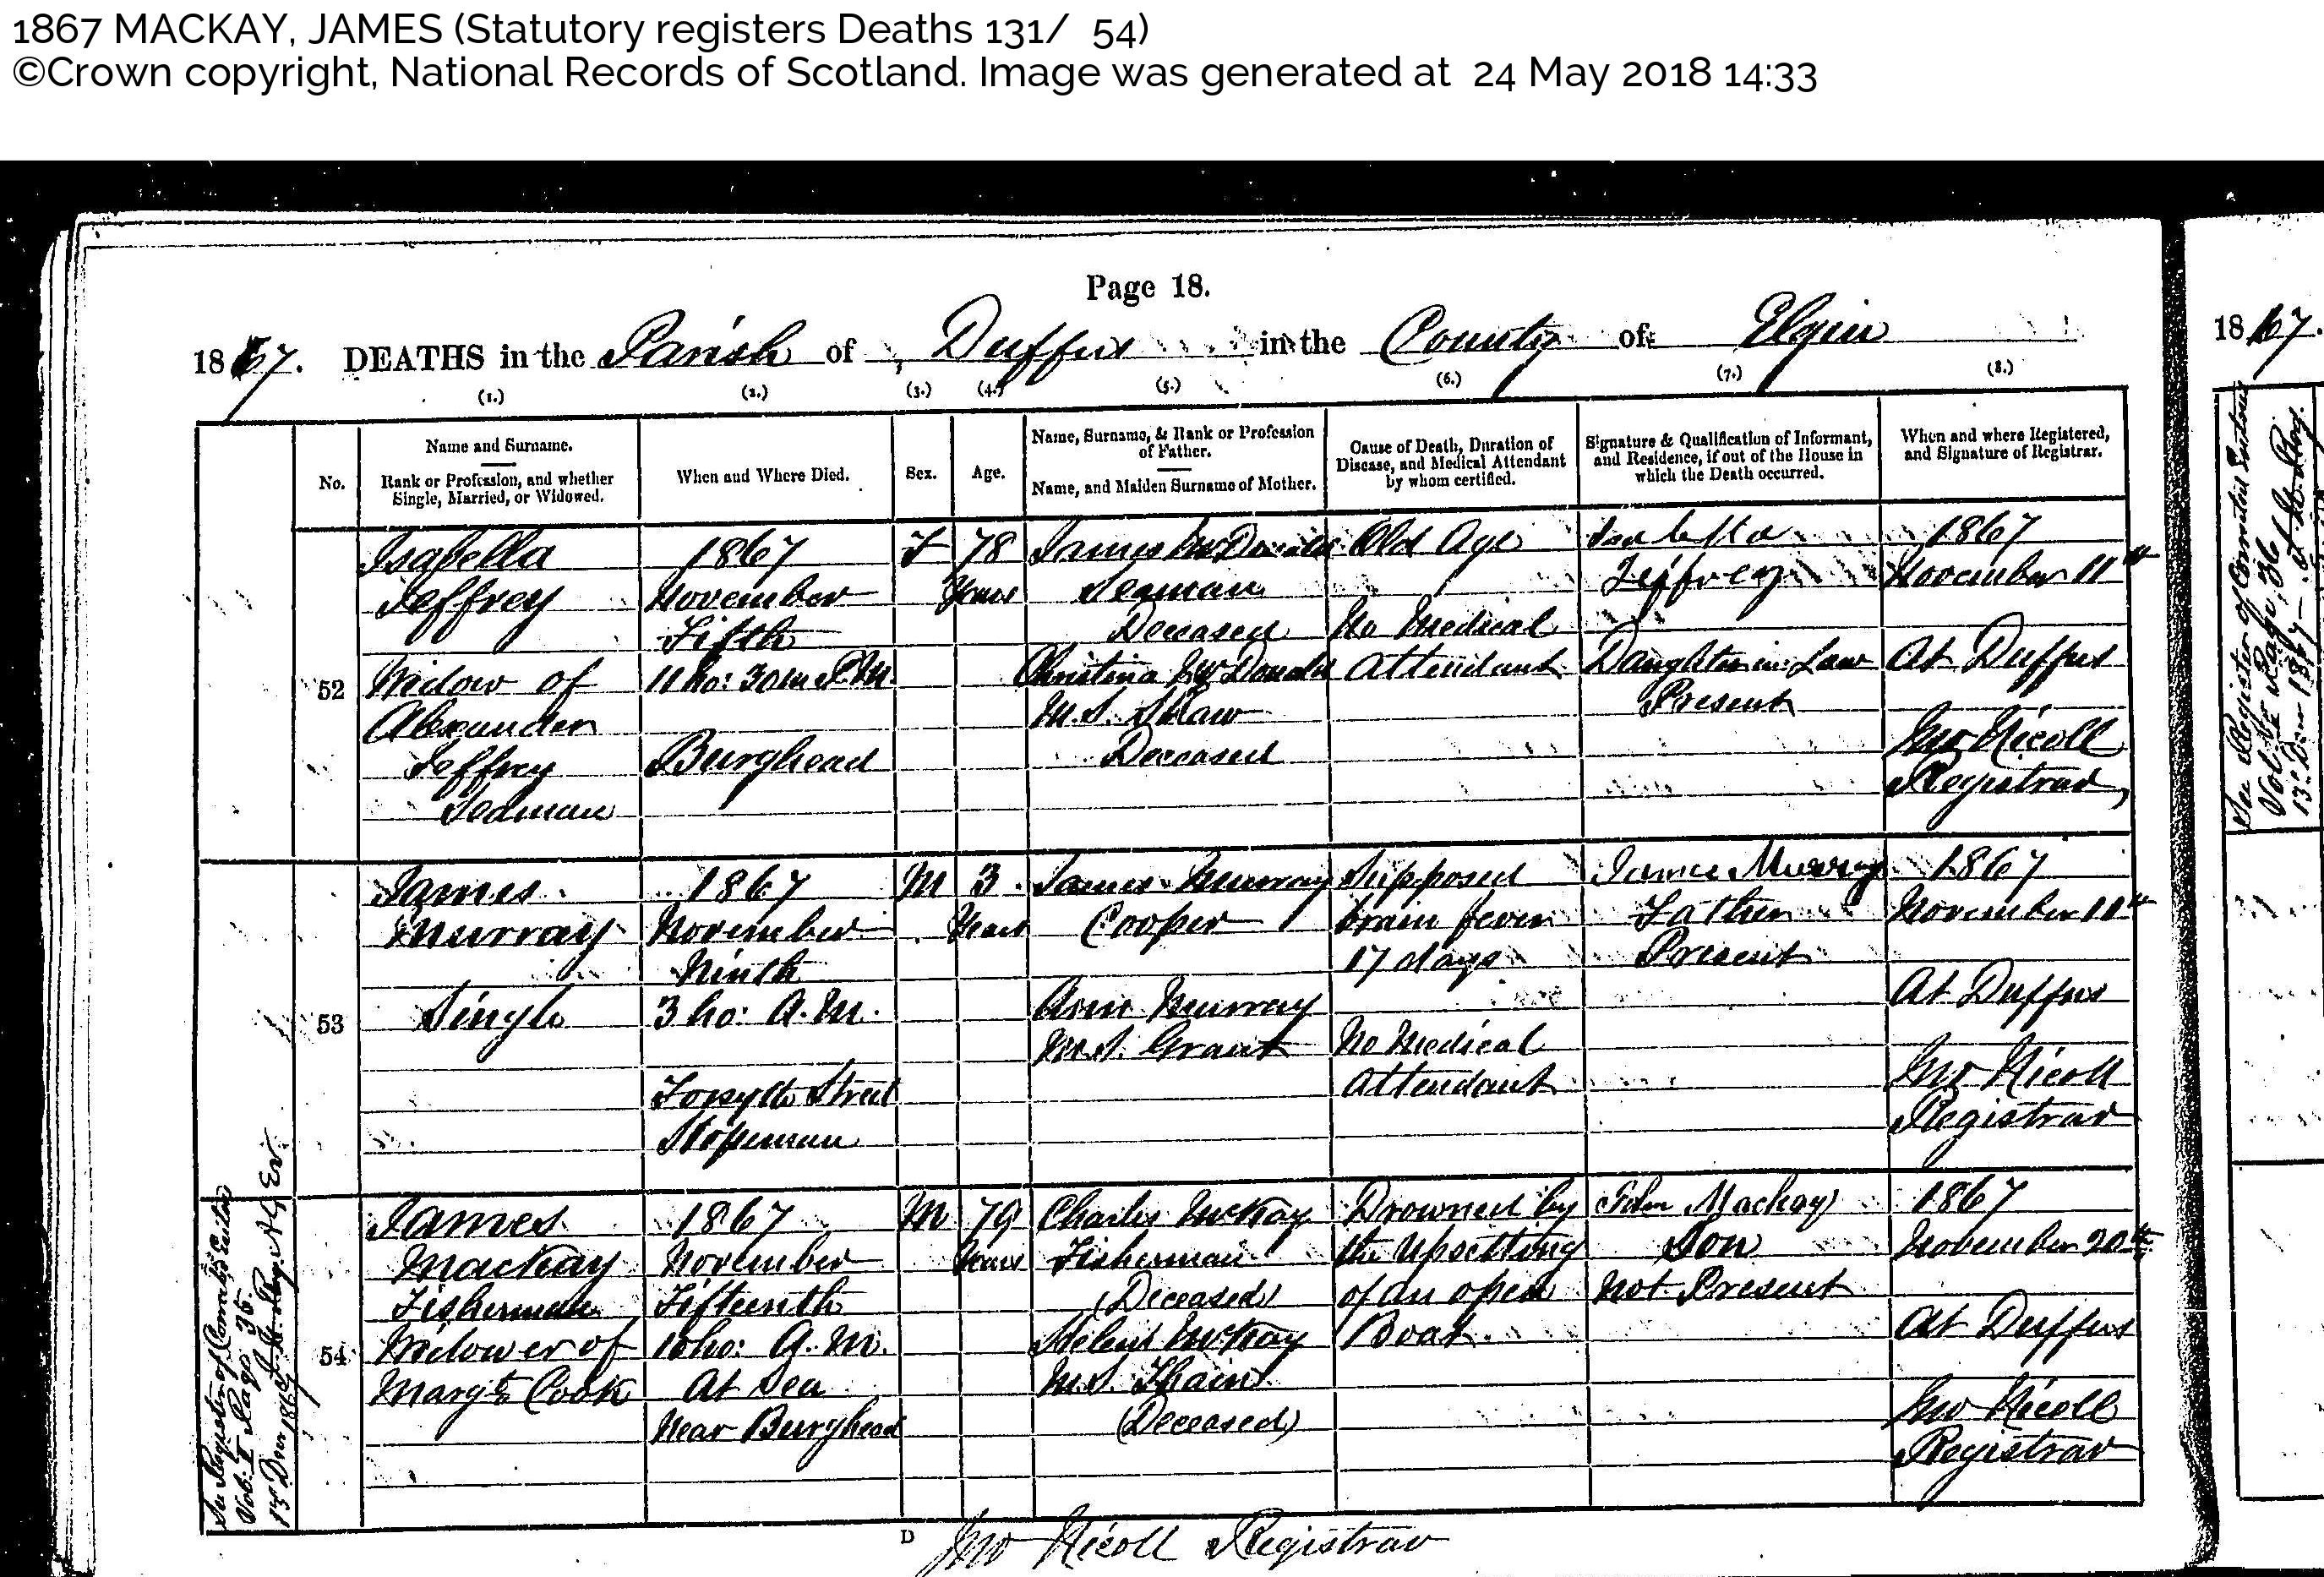 1867 MACKAY, JAMES (Statutory registers Deaths 131/  54)
©Crown copyright, National Records of Scotland. Image was generated at  24 May 2018 14:33
Page 18.
1867. DEATHS in the Parish of Duffus in the County of Elgin
(1.) (2.) (3.) (4.) (5.) (6.) (7.) (8.)
No.
Name and Surname.
Rank or Profession, and whether
Single, Married, or Widowed.
When and Where Died.
Sex.
Age.
Name, Surname, & Rank or Profession
of Father.
Name, and Maiden Surname of Mother.
Cause of Death, Duration of
Disease, and Medical Attendant
by whom certified.
Signature & Qualification of Informant,
and Residence, if out of the House in
which the Death occurred.
When and where Registered,
and Signature of Registrar.
52
Isabella
Jeffrey
Widow of
Alexander
Jeffrey
Seaman
1867
November
Fifth
11 ho: 30 m P.M.
Burghead
F
78
Years
James McDonald
Seaman
Deceased
Christina McDonald
M.S. Shaw
Deceased
Old Age
No Medical
Attendant
Jeffrey
Daughter in Law
Present
1867
November 11th
At Duffus
Jno Nicoll
Registrar
53
James
Murray
Single
1867
November
Ninth
3 ho: A.M.
Forsyth Street
Hopeman
M
3
Years
James Murray
Cooper
Ann Murray
M.S. Grant
Supposed
brain fever
17 days
No Medical
Attendant
James Murray
Father
Present
1867
November 11th
At Duffus
Jno Nicoll
Registrar
54
James
Mackay
Fisherman
Widower of
Margt Cook
1867
November
Fifteenth
10 ho: A.M.
At Sea
Near Burghead
M
79
Years
Charles McKay
Fisherman
(Deceased)
Helen McKay
M.S. Thain
(Deceased)
Drowned by
the Upsetting
of an open
Boat.
John Mackay
Son
Not Present
1867
November 20th
At Duffus
Jno Nicoll
Registrar
See Register of Corrected Entries
Vol. I Page 35
13th Decr 1867
D
Jno Nicoll Registrar
1867.
See Register of Corrected Entries
Page 36